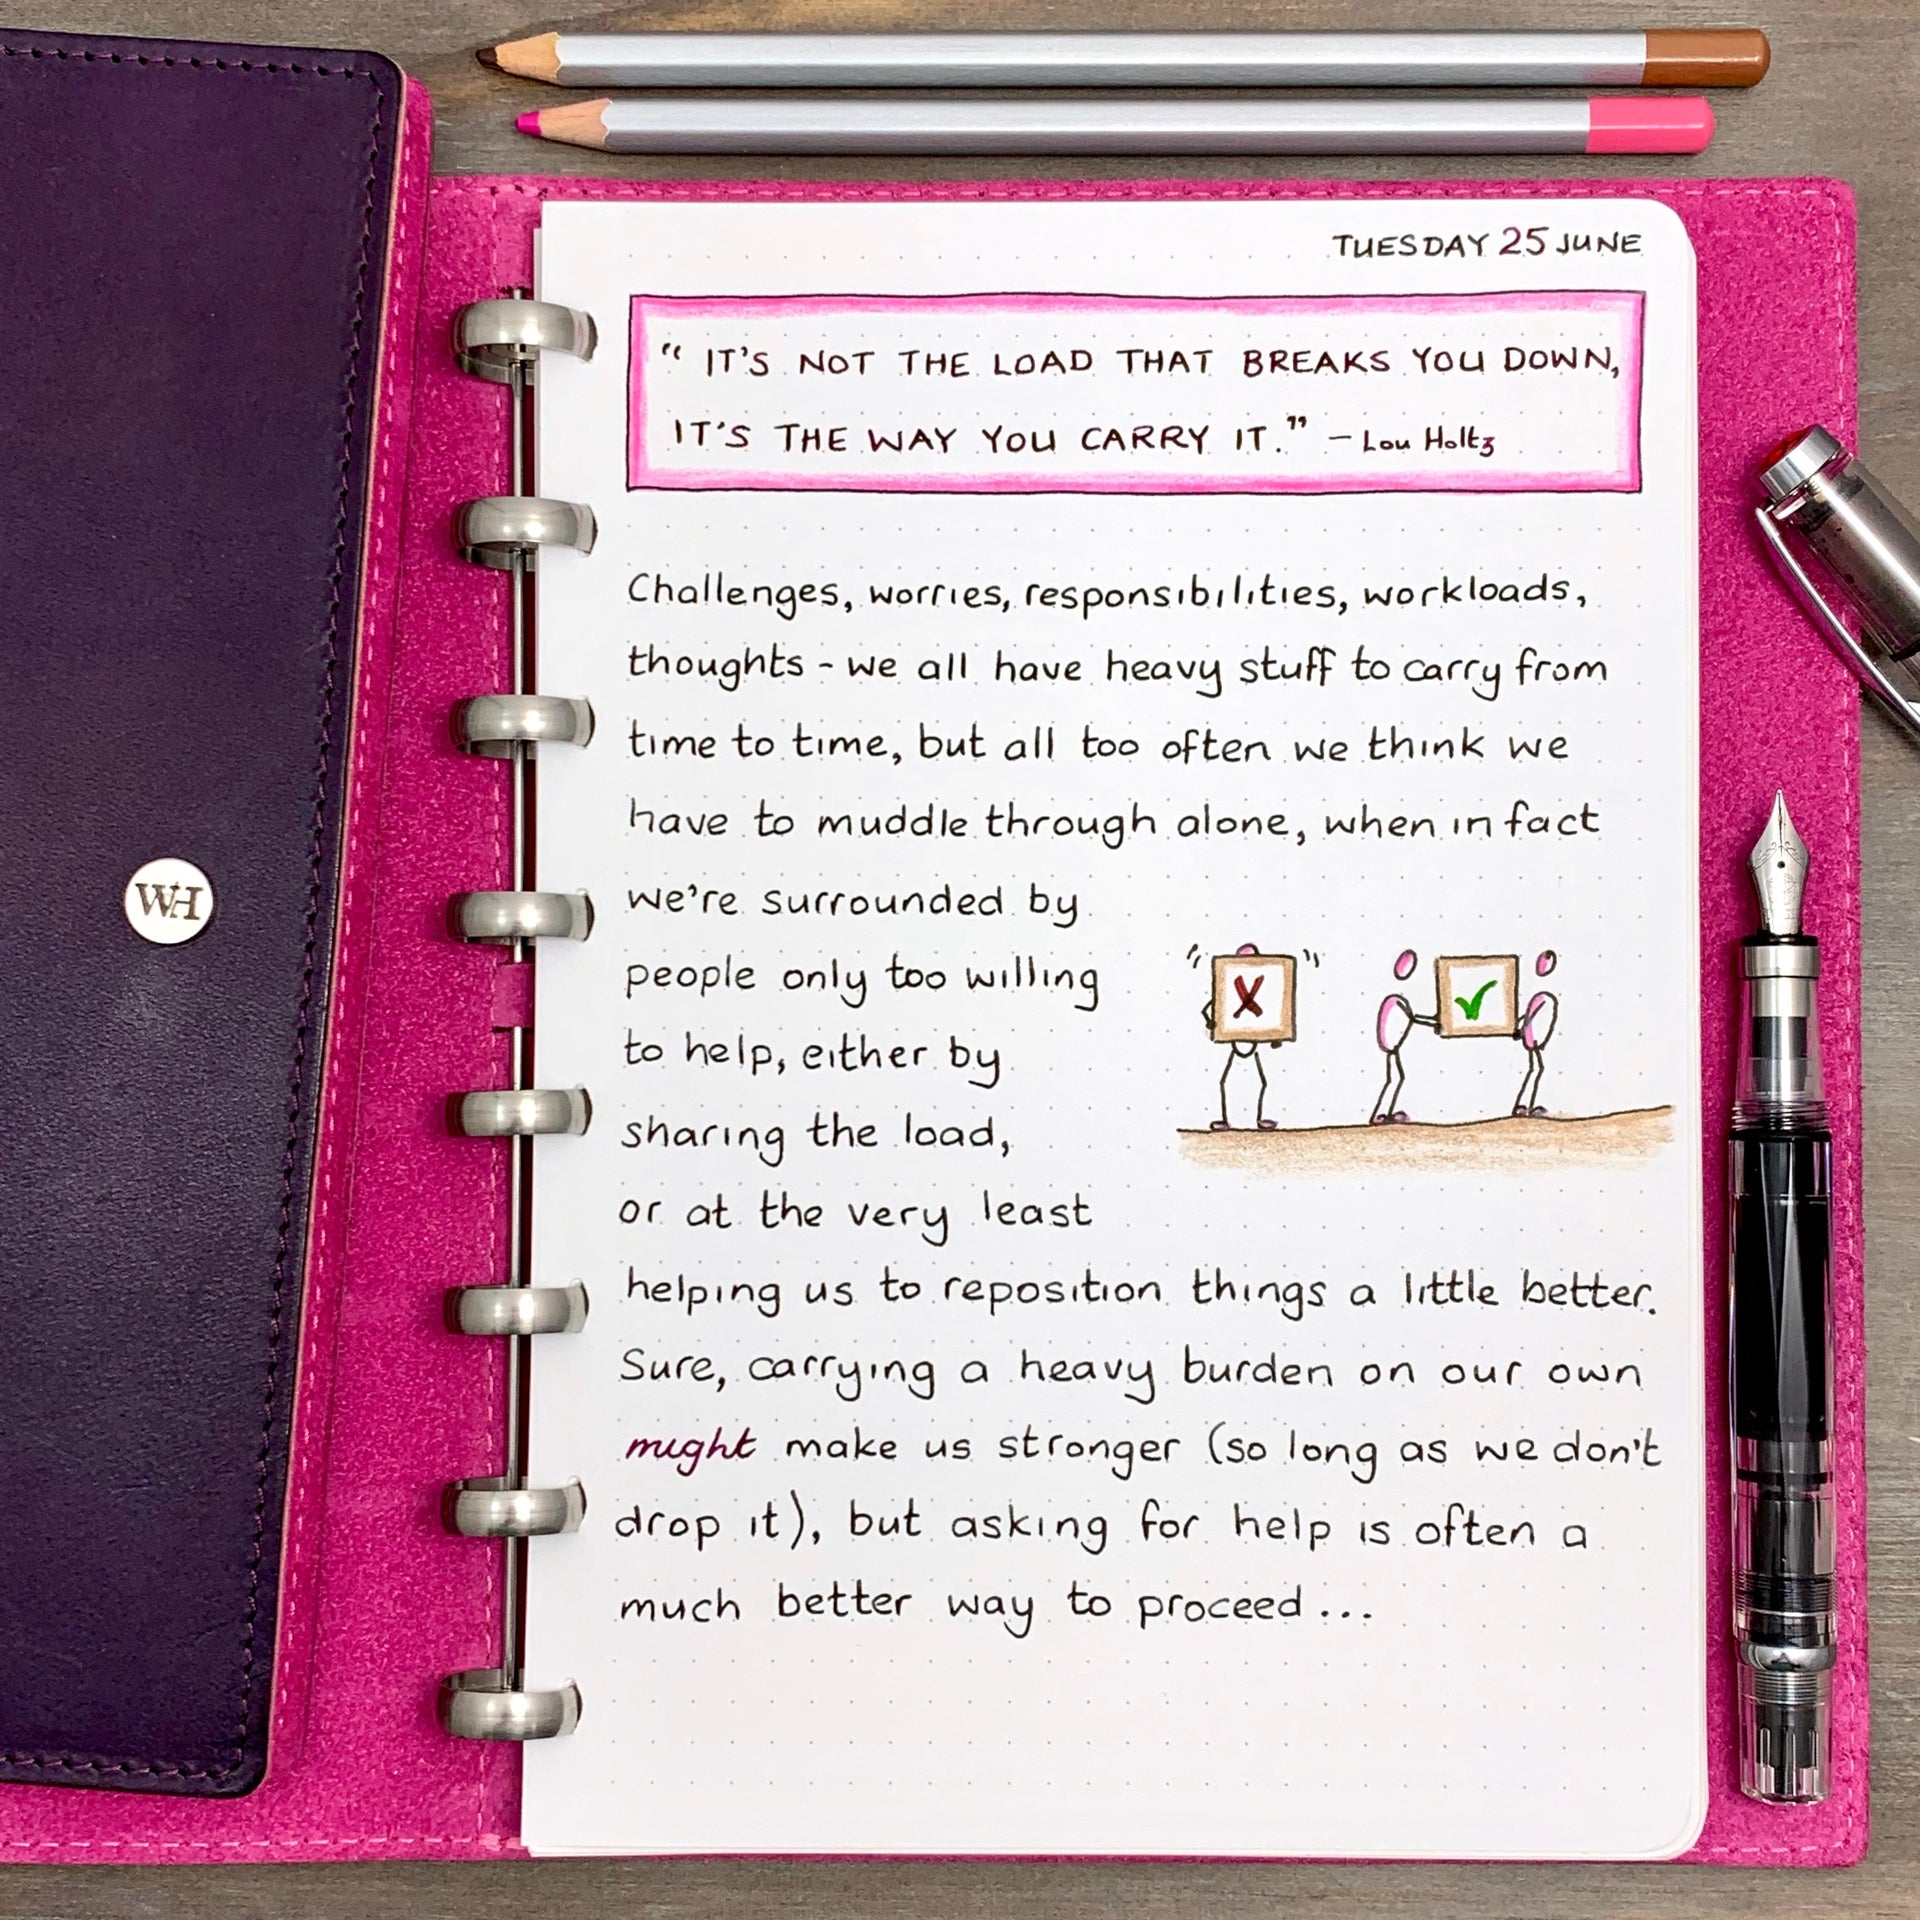 TUESDAY 25 JUNE
“IT'S NOT THE LOAD THAT BREAKS YOU DOWN,
IT'S THE WAY YOU CARRY IT.” – Lou Holtz
Challenges, worries, responsibilities, workloads,
thoughts - we all have heavy stuff to carry from
time to time, but all too often we think we
have to muddle through alone, when in fact
we're surrounded by
people only too willing
to help, either by
sharing the load,
or at the very least
helping us to reposition things a little better.
Sure, carrying a heavy burden on our own
might make us stronger (so long as we don't
drop it), but asking for help is often a
much better way to proceed...
WH